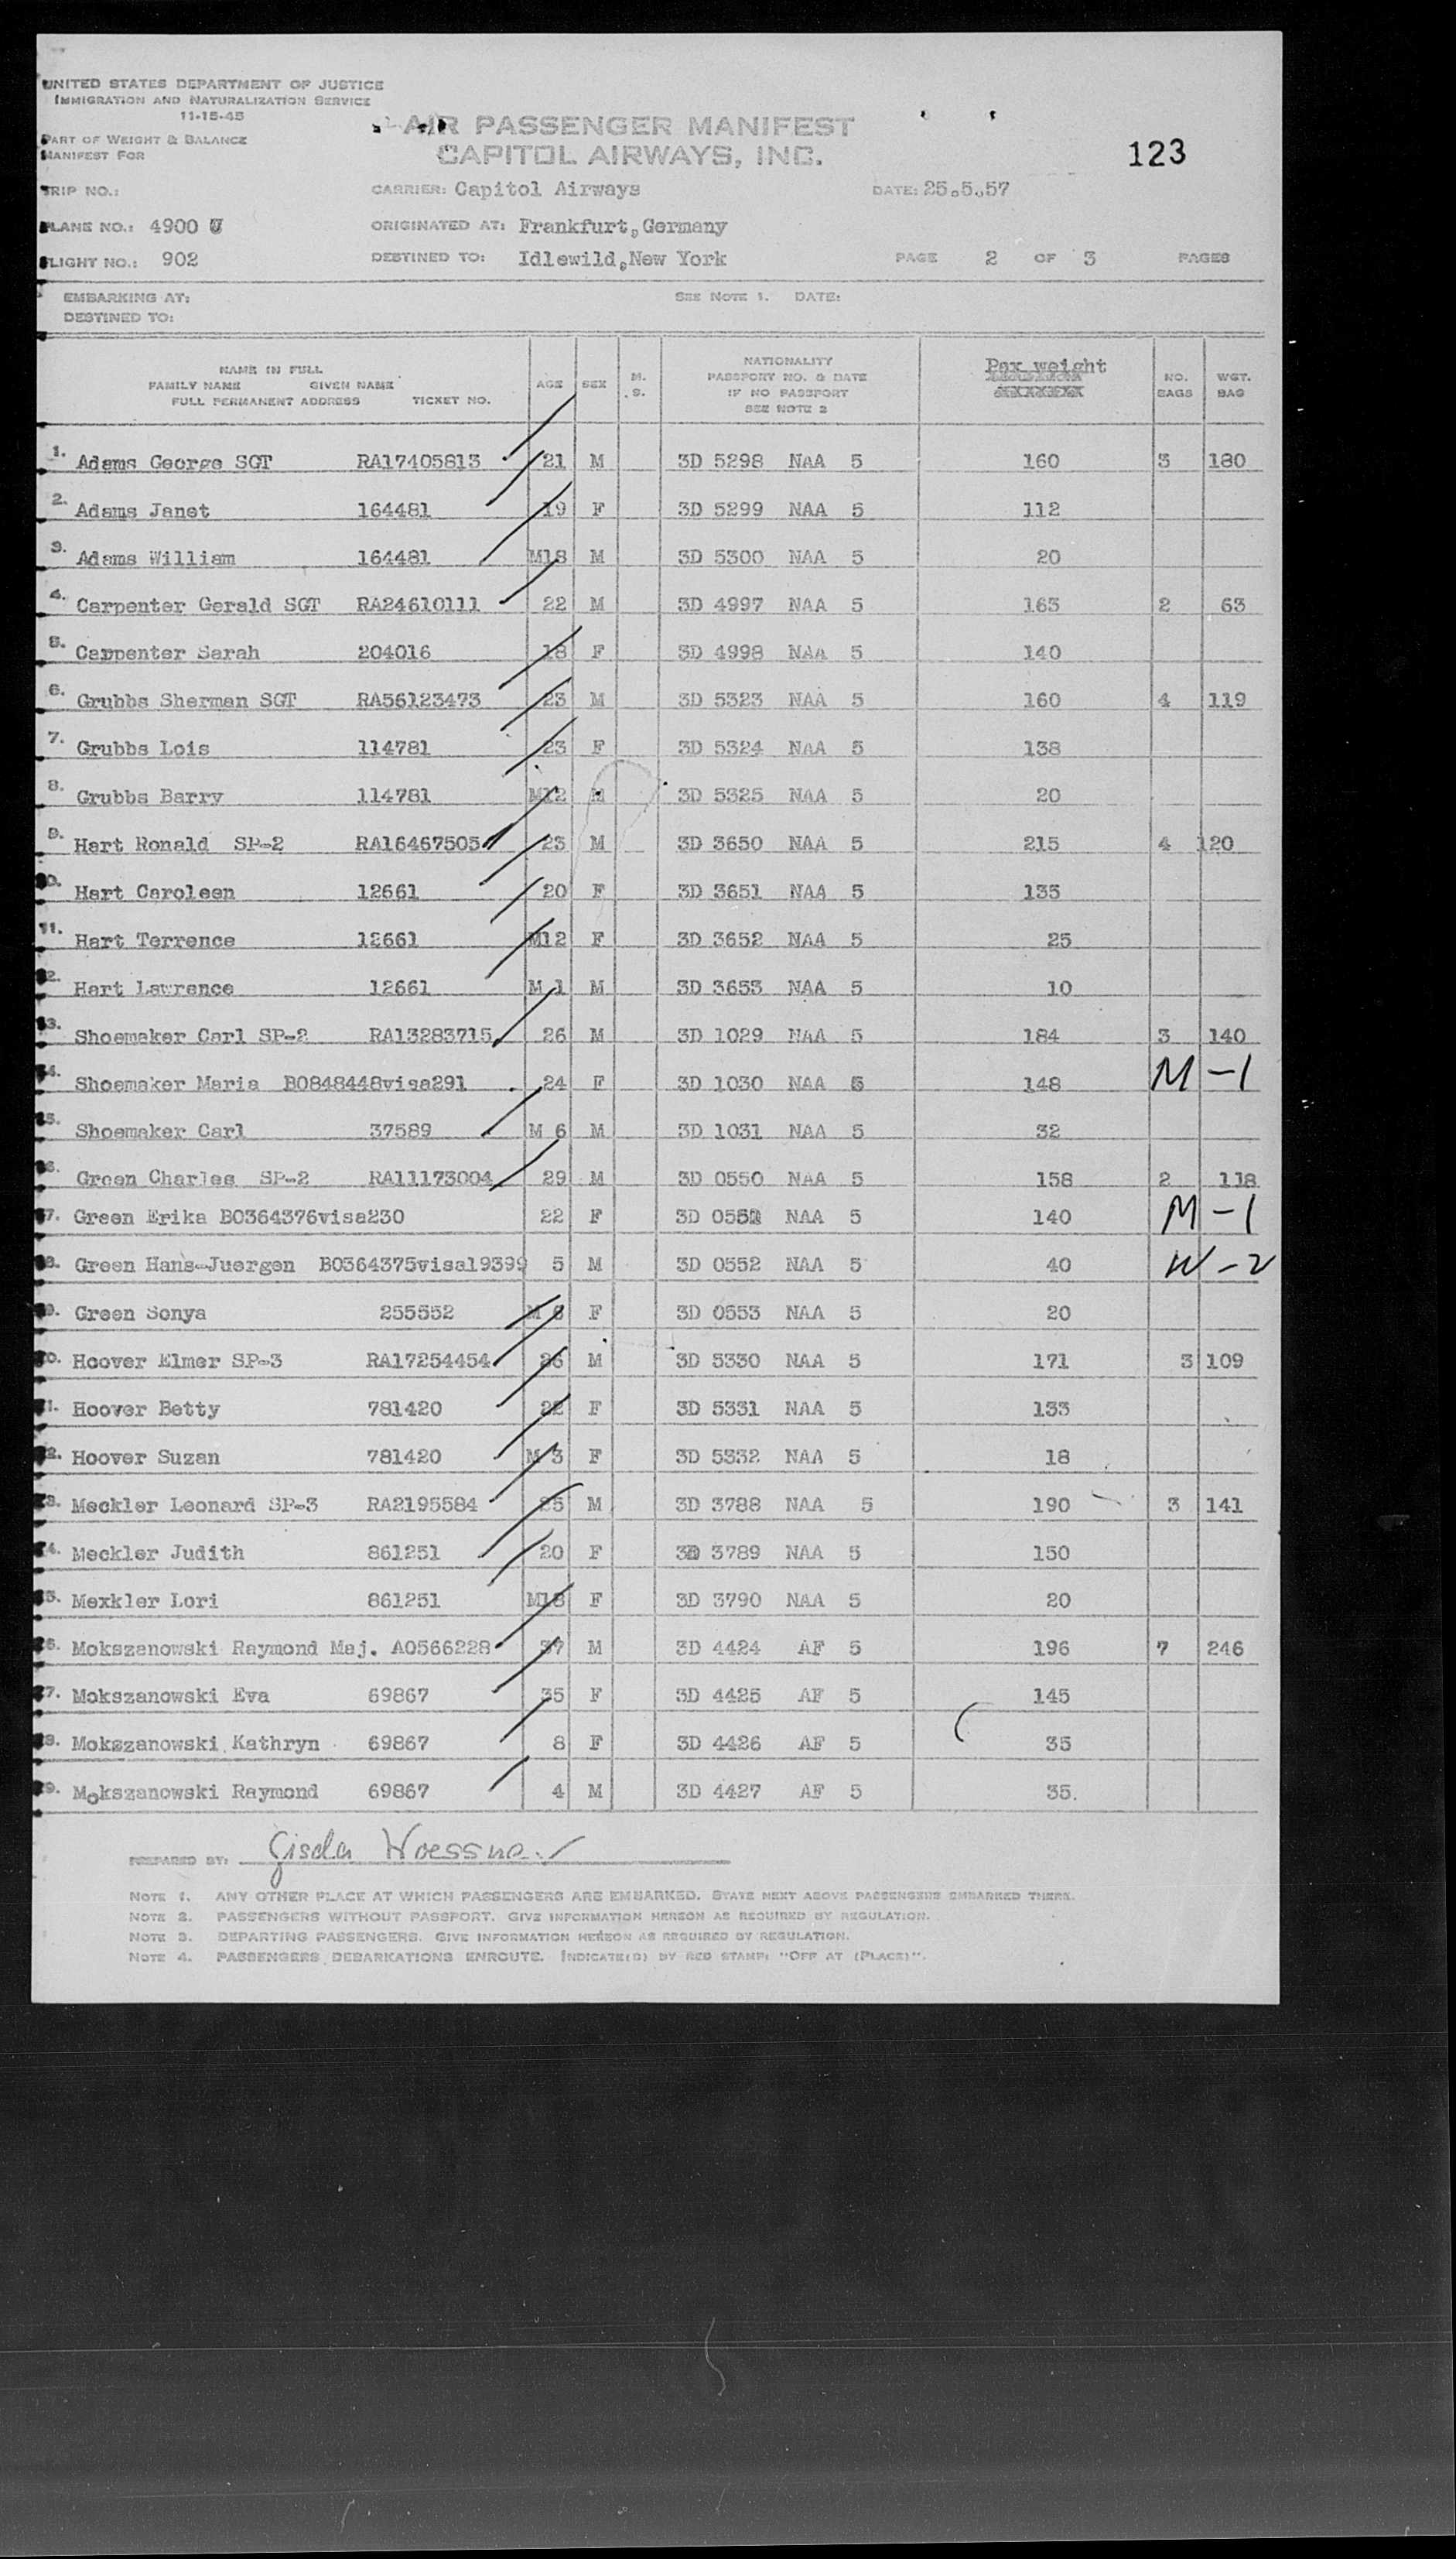 UNITED STATES DEPARTMENT OF JUSTICE
IMMIGRATION AND NATURALIZATION SERVICE
11-15-45
PART OF WEIGHT & BALANCE
MANIFEST FOR
AIR PASSENGER MANIFEST
CAPITOL AIRWAYS, INC.
123
TRIP NO.: CARRIER: Capitol Airways DATE: 25.5.57
PLANE NO.: 4900 U ORIGINATED AT: Frankfurt, Germany
FLIGHT NO.: 902 DESTINED TO: Idlewild, New York PAGE 2 OF 3 PAGES
EMBARKING AT: SEE NOTE 1. DATE:
DESTINED TO:
NAME IN FULL
FAMILY NAME GIVEN NAME
FULL PERMANENT ADDRESS TICKET NO.
AGE SEX M. S.
NATIONALITY
PASSPORT NO. & DATE
IF NO PASSPORT
SEE NOTE 2
Pax weight
NO. BAGS WGT. BAG
1. Adams George SGT RA17405813 21 M 3D 5298 NAA 5 160 3 180
2. Adams Janet 164481 19 F 3D 5299 NAA 5 112
3. Adams William 164481 M18 M 3D 5300 NAA 5 20
4. Carpenter Gerald SGT RA24610111 22 M 3D 4997 NAA 5 163 2 63
5. Carpenter Sarah 204016 18 F 3D 4998 NAA 5 140
6. Grubbs Sherman SGT RA56123473 23 M 3D 5323 NAA 5 160 4 119
7. Grubbs Lois 114781 23 F 3D 5324 NAA 5 138
8. Grubbs Barry 114781 M12 M 3D 5325 NAA 5 20
9. Hart Ronald SP-2 RA16467505 23 M 3D 3650 NAA 5 215 4 120
10. Hart Caroleen 12661 20 F 3D 3651 NAA 5 135
11. Hart Terrence 12661 M12 F 3D 3652 NAA 5 25
12. Hart Lawrence 12661 M 1 M 3D 3653 NAA 5 10
13. Shoemaker Carl SP-2 RA13283715 26 M 3D 1029 NAA 5 184 3 140
14. Shoemaker Maria B0848448visa291 24 F 3D 1030 NAA 5 148 M - 1
15. Shoemaker Carl 37589 M 6 M 3D 1031 NAA 5 32
16. Green Charles SP-2 RA11173004 29 M 3D 0550 NAA 5 158 2 118
17. Green Erika B0364376visa230 22 F 3D 0551 NAA 5 140 M - 1
18. Green Hans-Juergen B0364375visa19399 5 M 3D 0552 NAA 5 40 W - 2
19. Green Sonya 255552 M 6 F 3D 0553 NAA 5 20
20. Hoover Elmer SP-3 RA17254454 26 M 3D 5330 NAA 5 171 3 109
21. Hoover Betty 781420 22 F 3D 5331 NAA 5 133
22. Hoover Suzan 781420 M 3 F 3D 5332 NAA 5 18
23. Meckler Leonard SP-3 RA2195584 25 M 3D 3788 NAA 5 190 3 141
24. Meckler Judith 861251 20 F 3D 3789 NAA 5 150
25. Mexkler Lori 861251 M18 F 3D 3790 NAA 5 20
26. Mokszanowski Raymond Maj. AO566228 37 M 3D 4424 AF 5 196 7 246
27. Mokszanowski Eva 69867 35 F 3D 4425 AF 5 145
28. Mokszanowski Kathryn 69867 8 F 3D 4426 AF 5 35
29. Mokszanowski Raymond 69867 4 M 3D 4427 AF 5 35.
PREPARED BY: Gisela
NOTE 1. ANY OTHER PLACE AT WHICH PASSENGERS ARE EMBARKED. STATE NEXT ABOVE PASSENGERS EMBARKED THERE.
NOTE 2. PASSENGERS WITHOUT PASSPORT. GIVE INFORMATION HEREON AS REQUIRED BY REGULATION.
NOTE 3. DEPARTING PASSENGERS. GIVE INFORMATION HEREON AS REQUIRED BY REGULATION.
NOTE 4. PASSENGERS DEBARKATIONS ENROUTE. INDICATE(D) BY RED STAMP: "OFF AT (PLACE)".